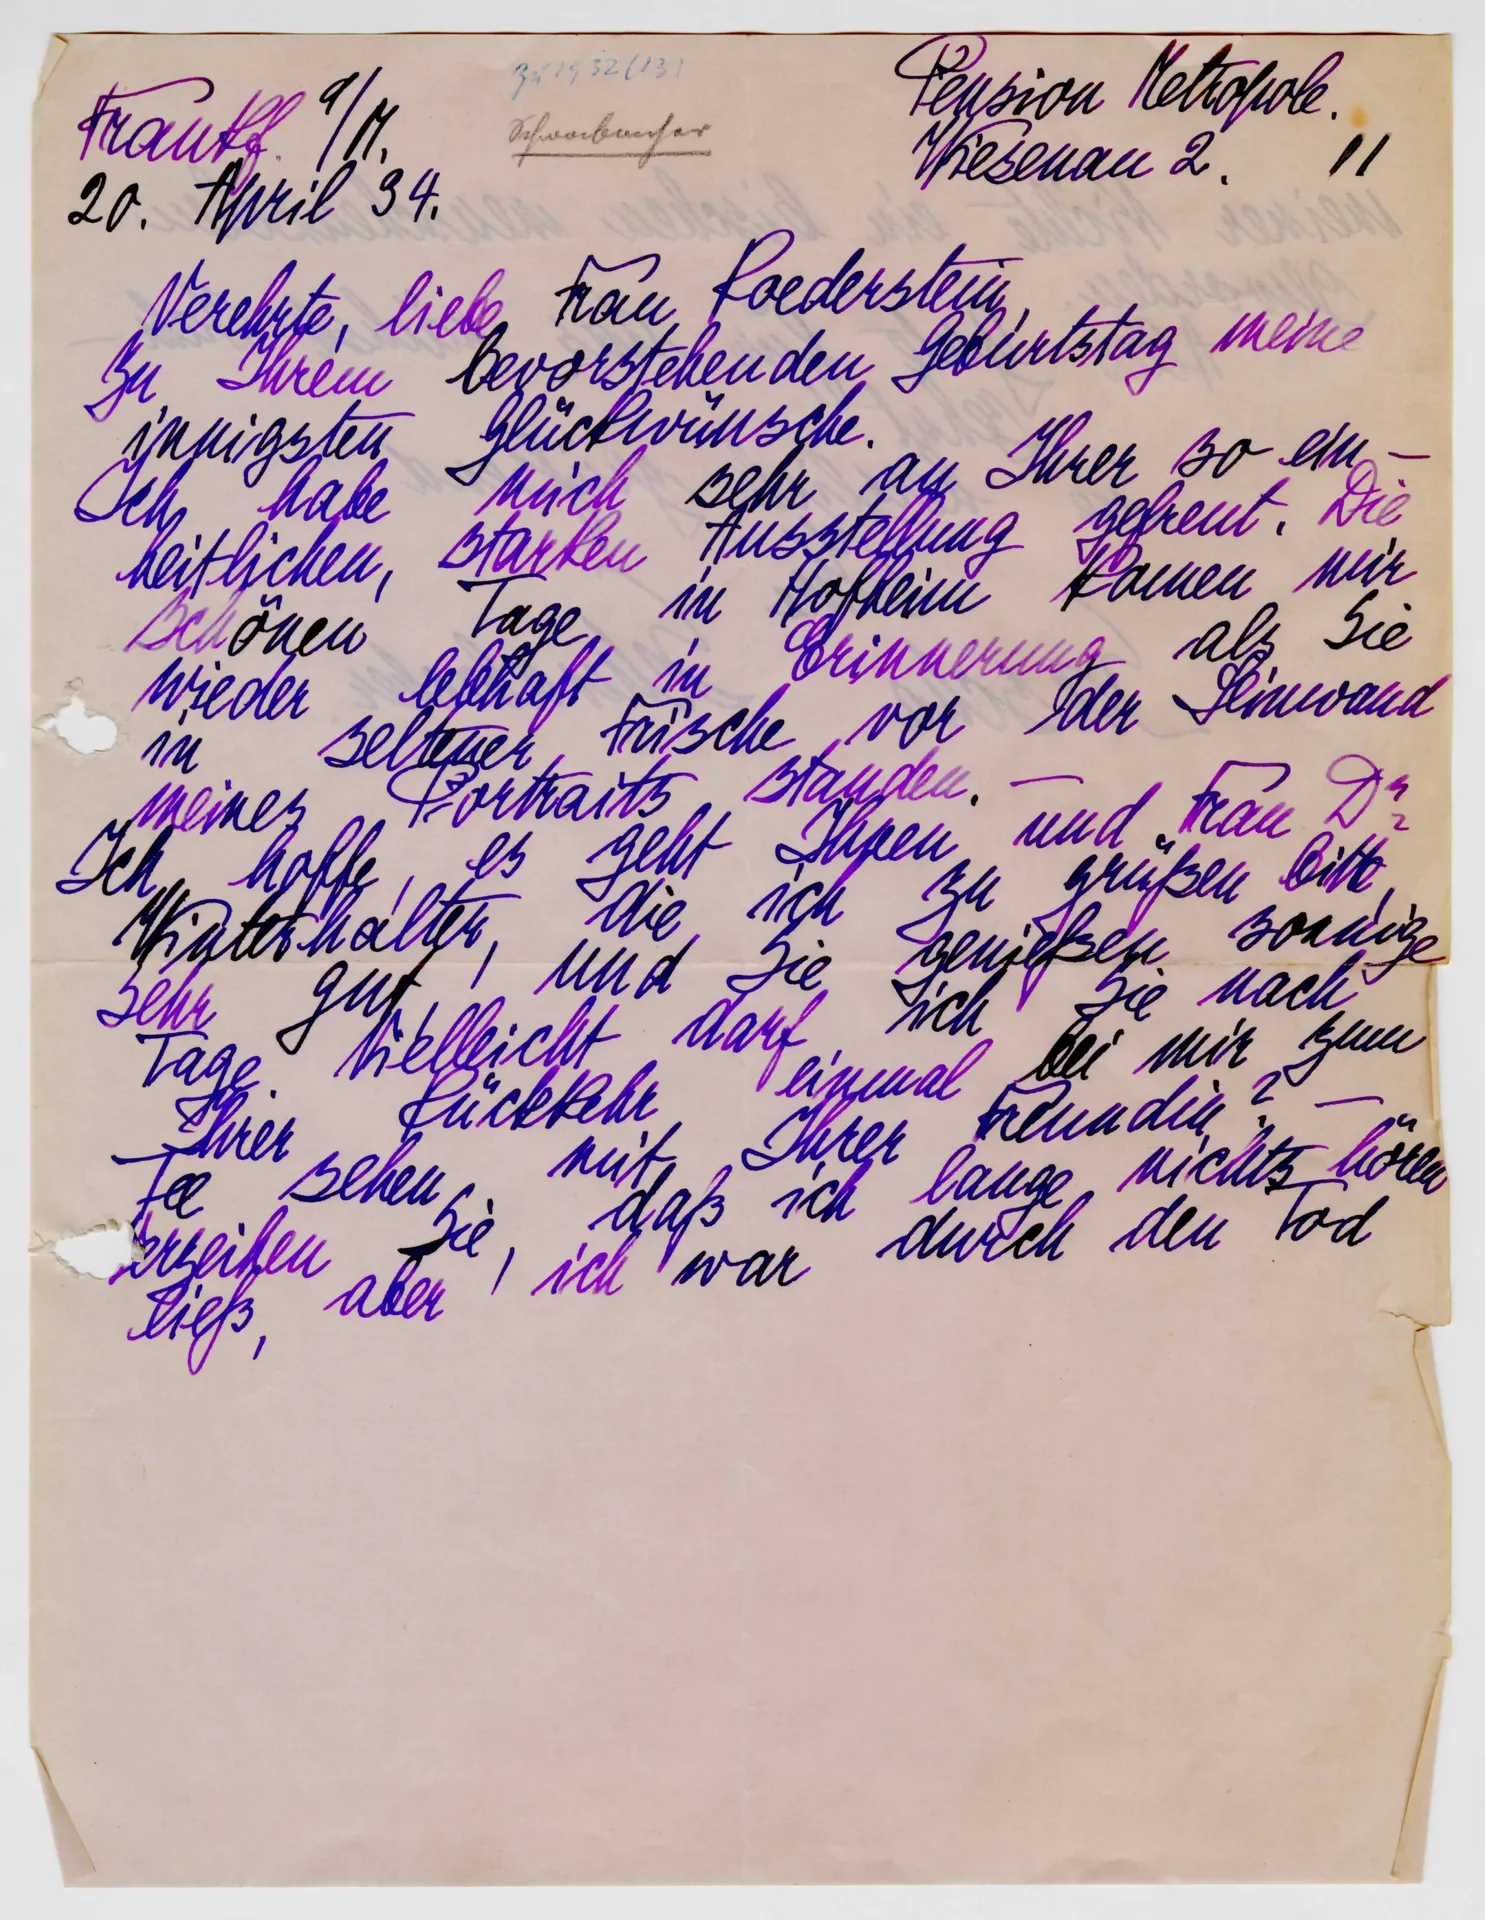 Pension Metropole.
Frankf. a/M. Wiesenau 2. II
20. April 34.
Verehrte, liebe Frau Roederstein,
zu Ihrem bevorstehenden Geburtstag meine
innigsten Glückwünsche.
Ich habe mich sehr an Ihrer so ein-
heitlichen, starken Ausstellung gefreut. Die
schönen Tage in Hofheim kamen mir
wieder lebhaft in Erinnerung als Sie
in seltener Frische vor der Leinwand
meines Portraits standen. —
Ich hoffe, es geht Ihnen und Frau Dr
Winterhalter, die ich zu grüßen bitte,
sehr gut, und Sie genießen sonnige
Tage. Vielleicht darf ich Sie nach
Ihrer Rückkehr einmal bei mir zum
Tee sehen mit Ihrer Freundin? —
Verzeihen Sie, daß ich lange nichts hören
ließ, aber ich war durch den Tod